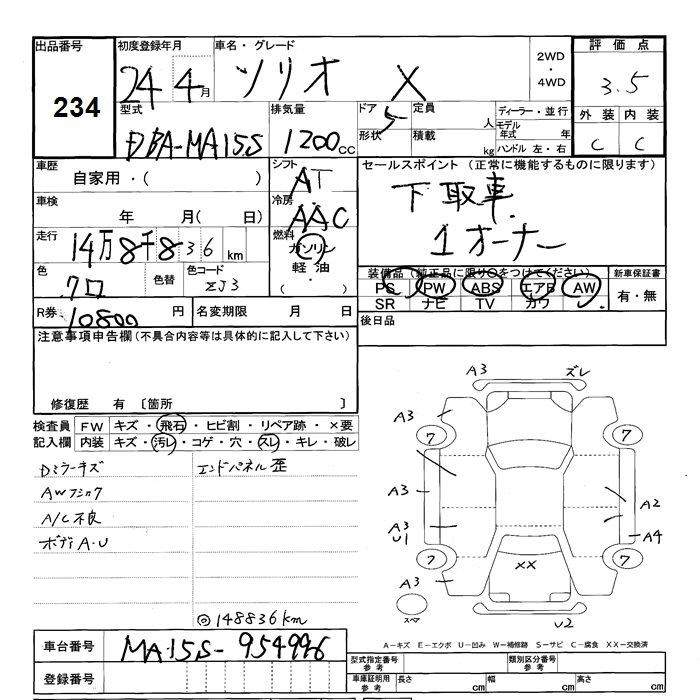 出品番号 初度登録年月 車名・グレード 2WD ・ 4WD 評価点
234 24 4月 ソリオ X 3.5
型式 排気量 ドア 定員 ディーラー・並行 外装 内装
DBA-MA15S 1200cc 5 人 モデル年式 年 C C
形状 積載 kg ハンドル 左・右
車歴 シフト セールスポイント (正常に機能するものに限ります)
自家用・( ) AT 下取車
車検 冷房 1オーナー
年 月( 日) AAC
走行 燃料
14万8千836km ガソリン
色 色替 色コード 軽油 装備品(純正品に限り○をつけてください) 新車保証書
クロ ZJ3 ( ・ ) PS PW ABS エアB AW 有・無
SR ナビ TV カワ
R券 10800円 名変期限 月 日 後日品
注意事項申告欄(不具合内容等は具体的に記入して下さい)
修復歴 有 [箇所 ]
検査員 FW キズ・飛石・ヒビ割・リペア跡・×要
記入欄 内装 キズ・汚レ・コゲ・穴・スレ・キレ・破レ
Dミラーキズ エンドパネル歪
AWフミック
A/C不良
ボディA・U
◎148836km
A3 ズレ
A3
7 7
A3 A2
A3 U1 A4
7 7
XX
A3
スペア U2
A-キズ E-エクボ U-凹み W-補修跡 S-サビ C-腐食 XX-交換済
車台番号 MA15S-954996 型式指定番号 参考 類別区分番号 参考
登録番号 車庫証明用 参考 長さ cm 幅 cm 高さ cm